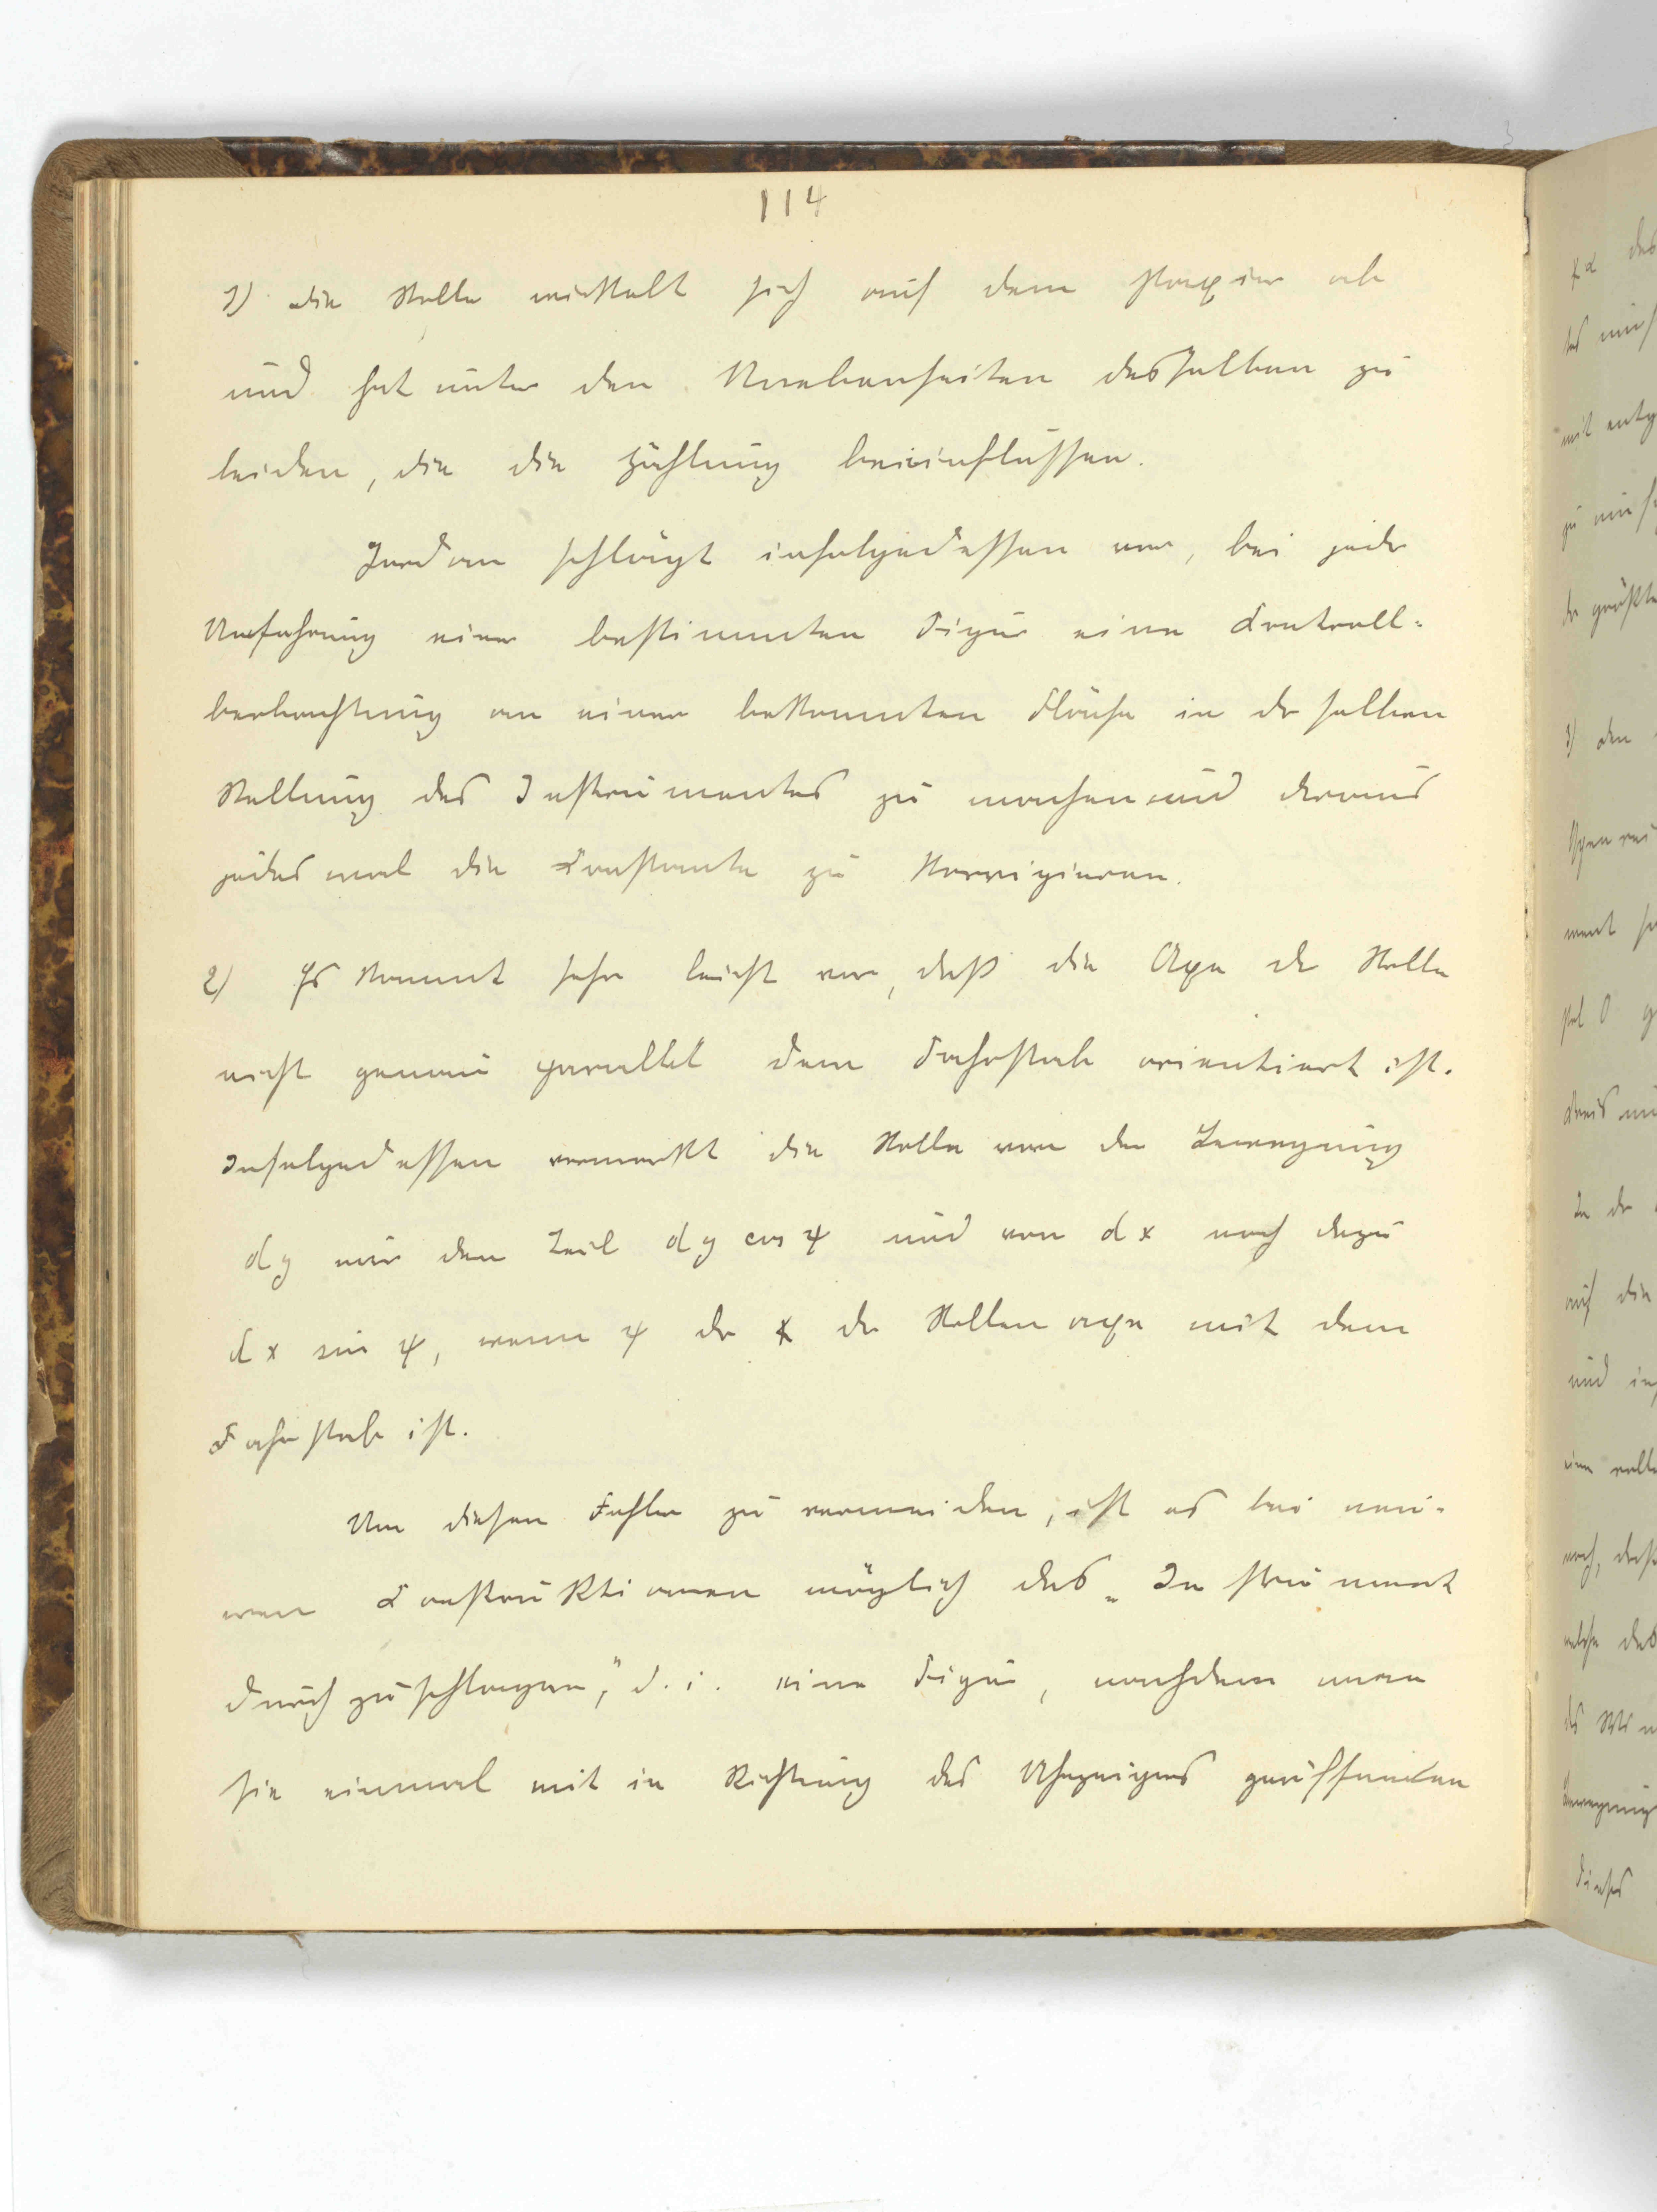 114
1) die Rolle wickelt sich auf dem Papier ab
und hat unter den Unebenheiten desselben zu
leiden, die die Zählung beeinflussen.
Jordan schlägt infolgedessen vor, bei jeder
Umfahrung einer bestimmten Figur eine Kontroll-
beobachtung an einer bekannten Fläche in derselben
Stellung des Instrumentes zu machen und daraus
jedesmal die Konstante zu korrigieren.
2) Es kommt sehr leicht vor, daß die Axe der Rolle
nicht genau parallel dem Fahrstab orientiert ist.
Infolgedessen vermerkt die Rolle von der Bewegung
dy nur den Teil dy cos ψ und von dx noch dazu
dx sin ψ, wenn ψ der ∢ der Rollenaxe mit dem
Fahrstab ist.
Um diesen Fehler zu vermeiden, ist es bei neu-
eren Konstruktionen möglich das „Instrument
durchzuschlagen," d. i. eine Figur, nachdem man
sie einmal mit in Richtung des Uhrzeigers
des
mit entg
3) den
ment
pol O
In der
auf die
und in
eine
noch, daß
welche das
des
Bewegung
dieses